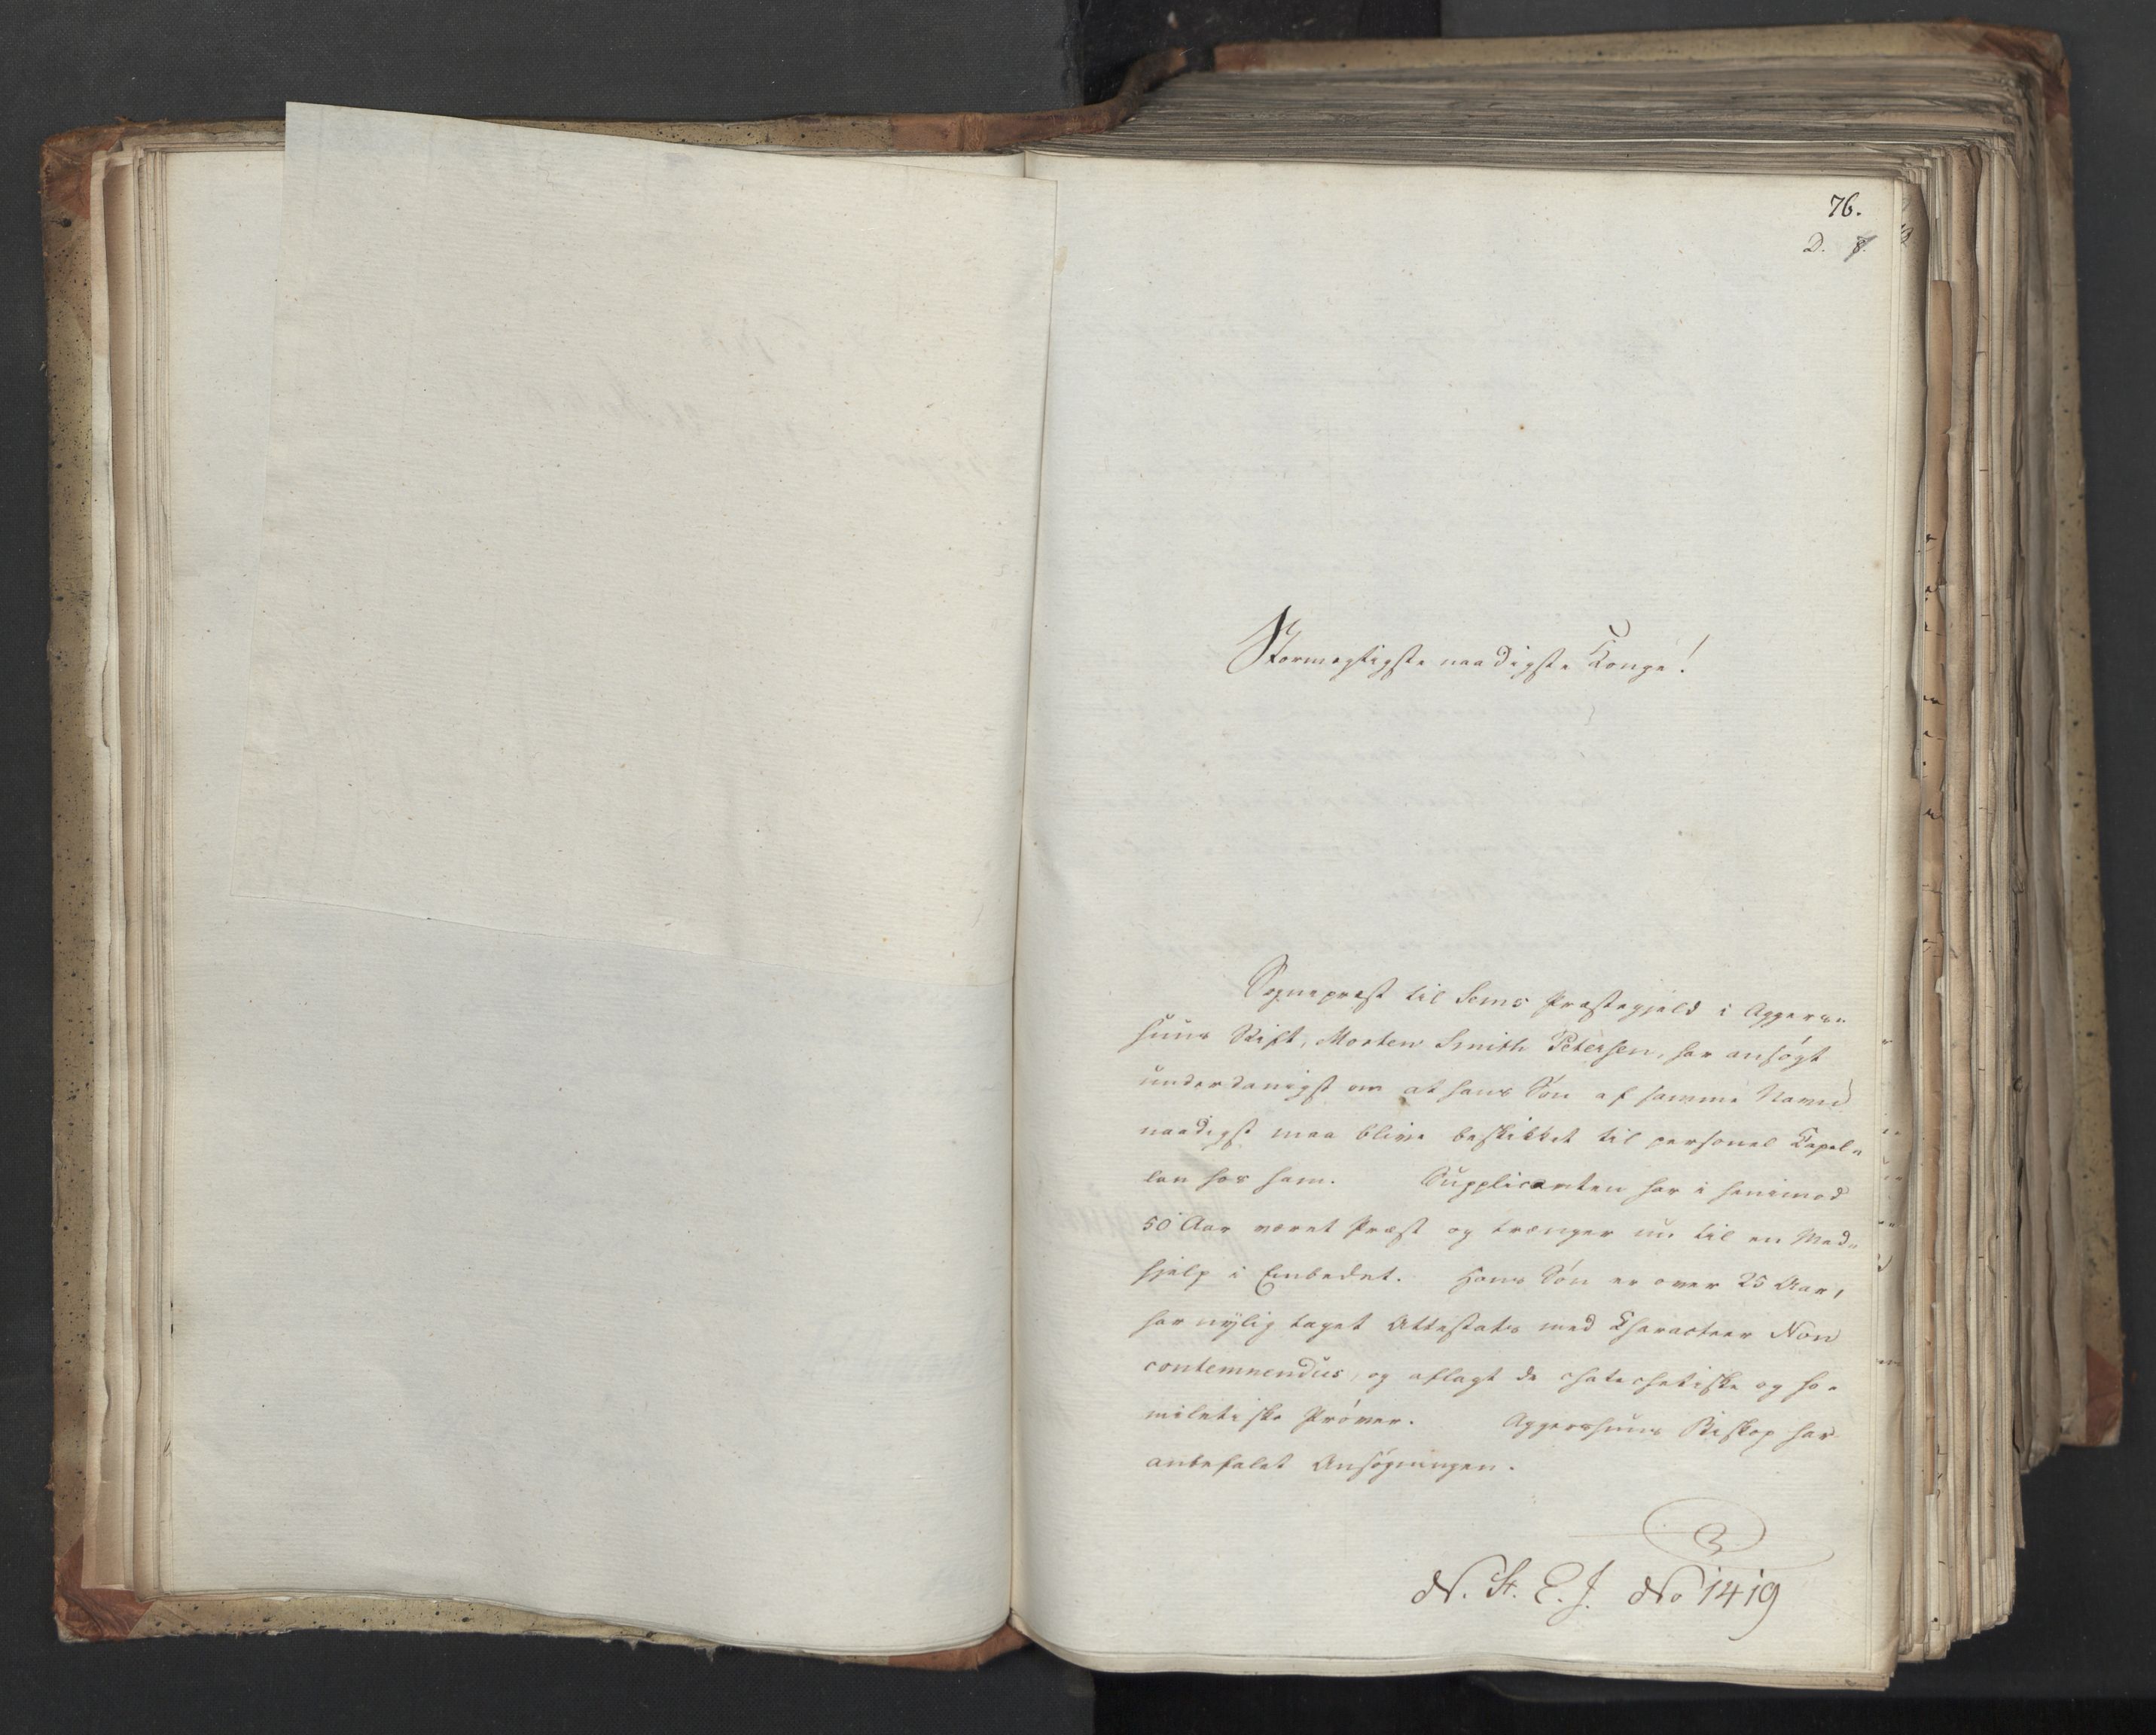 76.
D. 8.
Stormægtigste naadigste Konge!
Sognepræst til Sems Præstegjeld i Aggers-
huus Stift, Morten Smith Petersen, har ansøgt
underdanigst om at hans Søn af samme Navn
naadigst maa blive beskikket til personel Capel-
lan hos ham. Supplicanten har i henimod
50 Aar været Præst og trænger nu til en Med-
hjelp i Embedet. Hans Søn er over 25 Aar,
har nylig taget Attestats med Characteer Non
contemnendus, og aflagt de chatechetiske og ho-
miletiske Prøver. Aggershuus Biskop har
anbefalet Ansøgningen.
N. St. E. J. No 1419